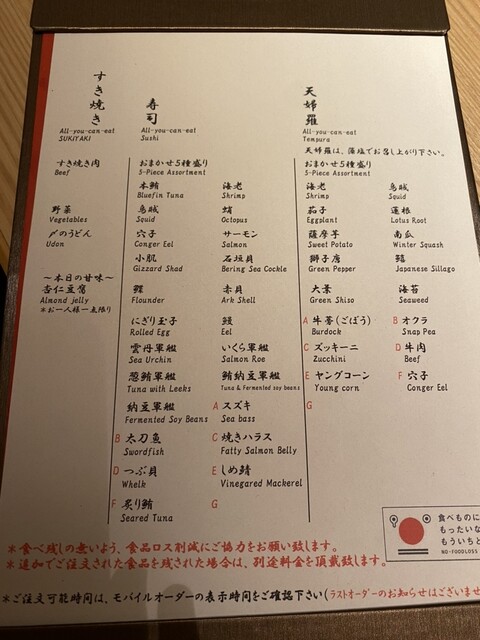 すき焼き
All-you-can-eat
SUKIYAKI
すき焼き肉
Beef
野菜
Vegetables
〆のうどん
Udon
～本日の甘味～
杏仁豆腐
Almond jelly
*お一人様一点限り
寿司
All-you-can-eat
Sushi
おまかせ5種盛り
5-Piece Assortment
本鮪
Bluefin Tuna
海老
Shrimp
烏賊
Squid
蛸
Octopus
穴子
Conger Eel
サーモン
Salmon
小肌
Gizzard Shad
石垣貝
Bering Sea Cockle
鰈
Flounder
赤貝
Ark Shell
にぎり玉子
Rolled Egg
鰻
Eel
雲丹軍艦
Sea Urchin
いくら軍艦
Salmon Roe
葱鮪軍艦
Tuna with Leeks
鮪納豆軍艦
Tuna & Fermented soy beans
納豆軍艦
Fermented Soy Beans
A スズキ
Sea bass
B 太刀魚
Swordfish
C 焼きハラス
Fatty Salmon Belly
D つぶ貝
Whelk
E しめ鯖
Vinegared Mackerel
F 炙り鮪
Seared Tuna
G
天婦羅
All-you-can-eat
Tempura
天婦羅は、藻塩でお召し上がり下さい。
おまかせ5種盛り
5-Piece Assortment
海老
Shrimp
烏賊
Squid
茄子
Eggplant
蓮根
Lotus Root
薩摩芋
Sweet Potato
南瓜
Winter Squash
獅子唐
Green Pepper
鱚
Japanese Sillago
大葉
Green Shiso
海苔
Seaweed
A 牛蒡(ごぼう)
Burdock
B オクラ
Snap Pea
C ズッキーニ
Zucchini
D 牛肉
Beef
E ヤングコーン
Young corn
F 穴子
Conger Eel
G
食べものに
もったいな
もういちど
NO-FOODLOSS
*食べ残しの無いよう、食品ロス削減にご協力をお願い致します。
*追加でご注文された食品を残された場合は、別途料金を頂戴致します。
*ご注文可能時間は、モバイルオーダーの表示時間をご確認下さい(ラストオーダーのお知らせはございませ